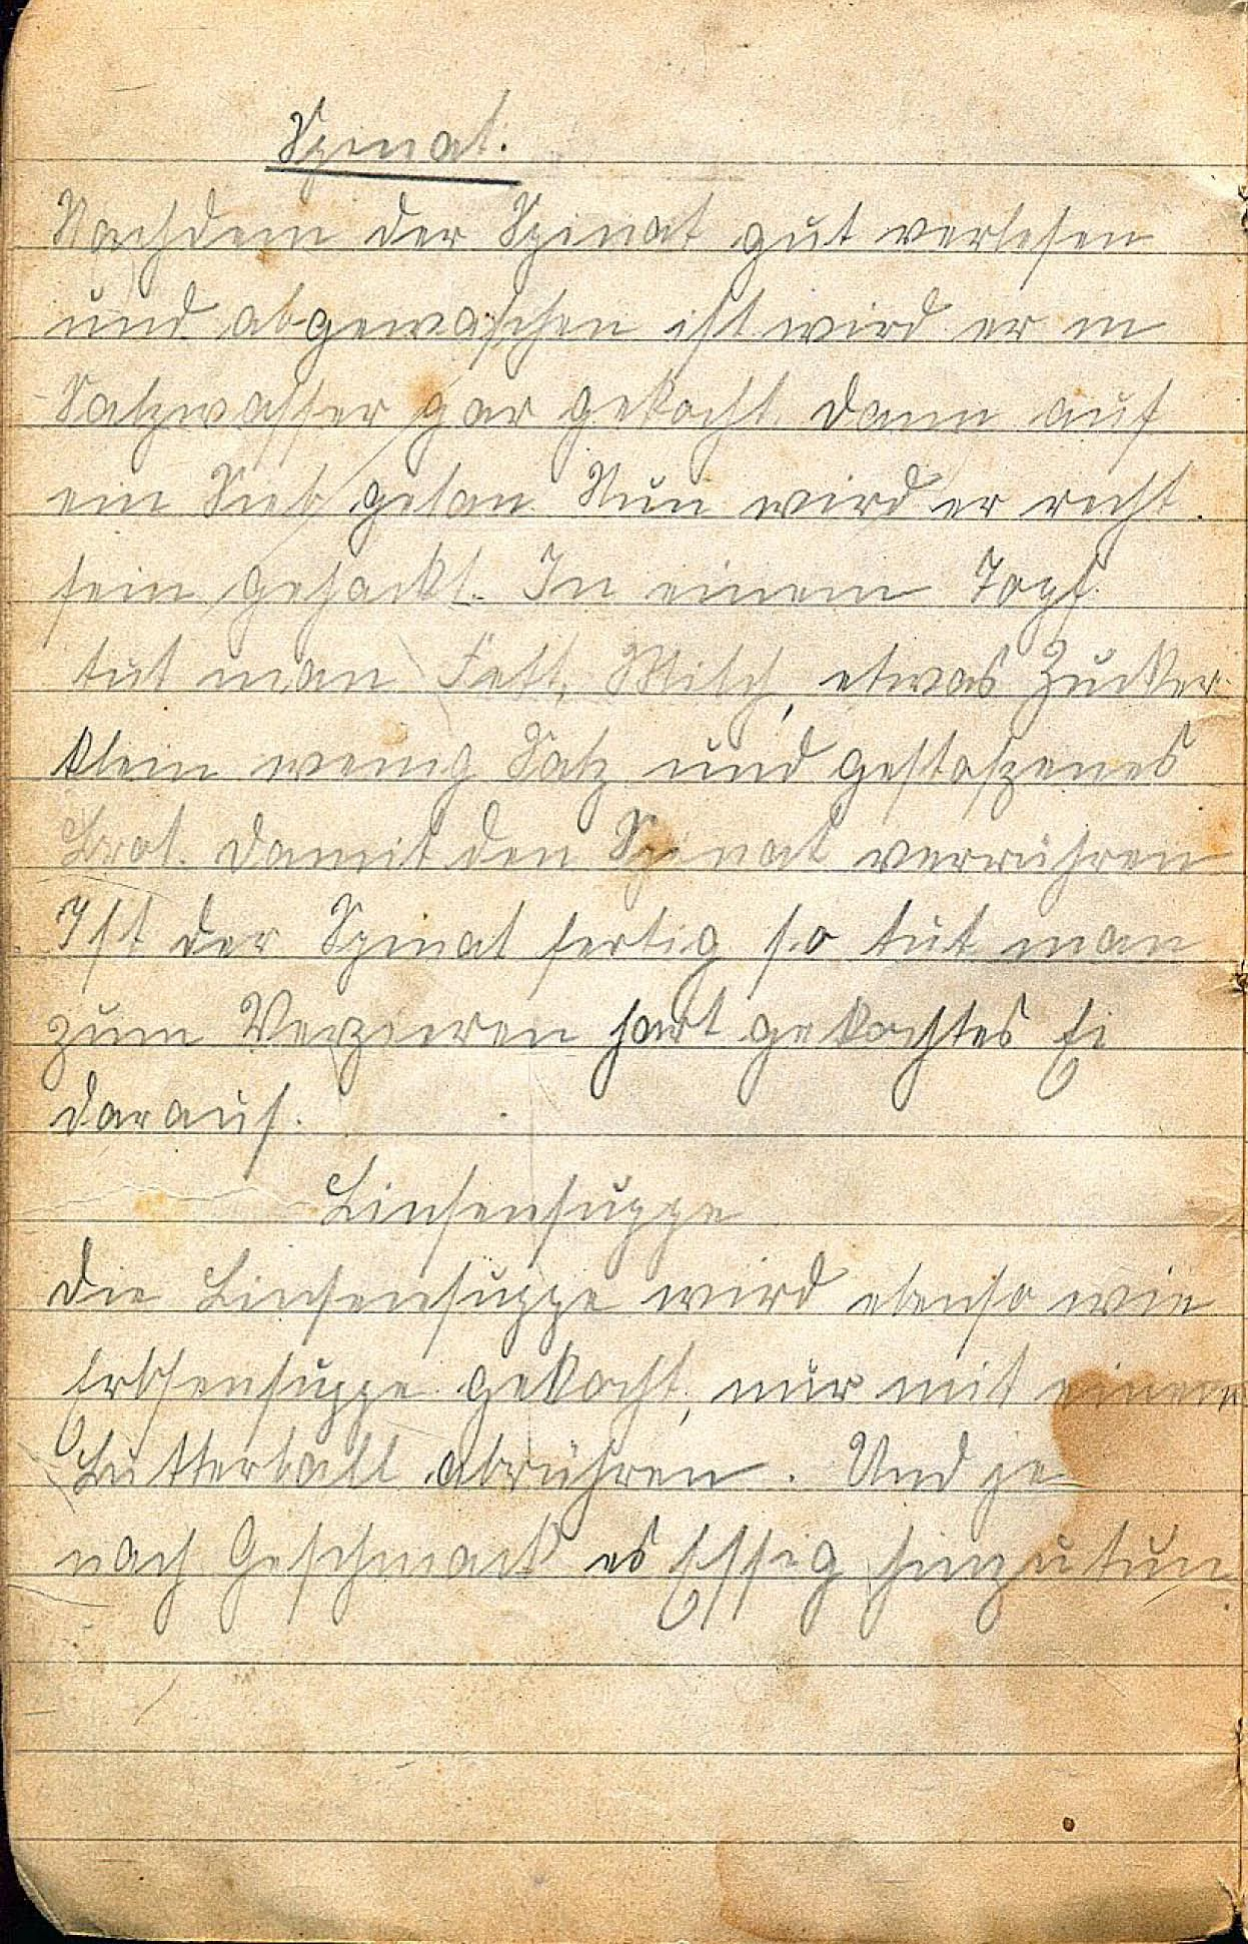 Spinat.
Nachdem der Spinat gut verlesen
und abgewaschen ist wird er in
Salzwasser gar gekocht dann auf
ein Sieb getan Nun wird er recht
fein gehackt. In einem Topf
tut man Fett, Milch, etwas Zucker
klein wenig Salz und gestoßenes
Brot. damit den Spinat verrühren
Ist der Spinat fertig so tut man
zum Verzieren hart gekochtes Ei
darauf.
Linsensuppe
Die Linsensuppe wird ebenso wie
Erbsensuppe gekocht, nur mit einem
Butterball abrühren. Und je
nach Geschmack es Essig hinzutun